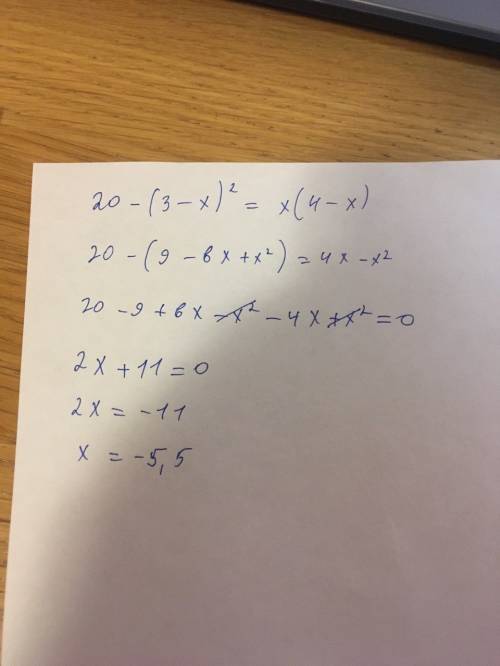 20 - (3 - x)² = x(4 - x)
20 - (9 - 6x + x²) = 4x - x²
20 - 9 + 6x - x² - 4x + x² = 0
2x + 11 = 0
2x = -11
x = -5,5